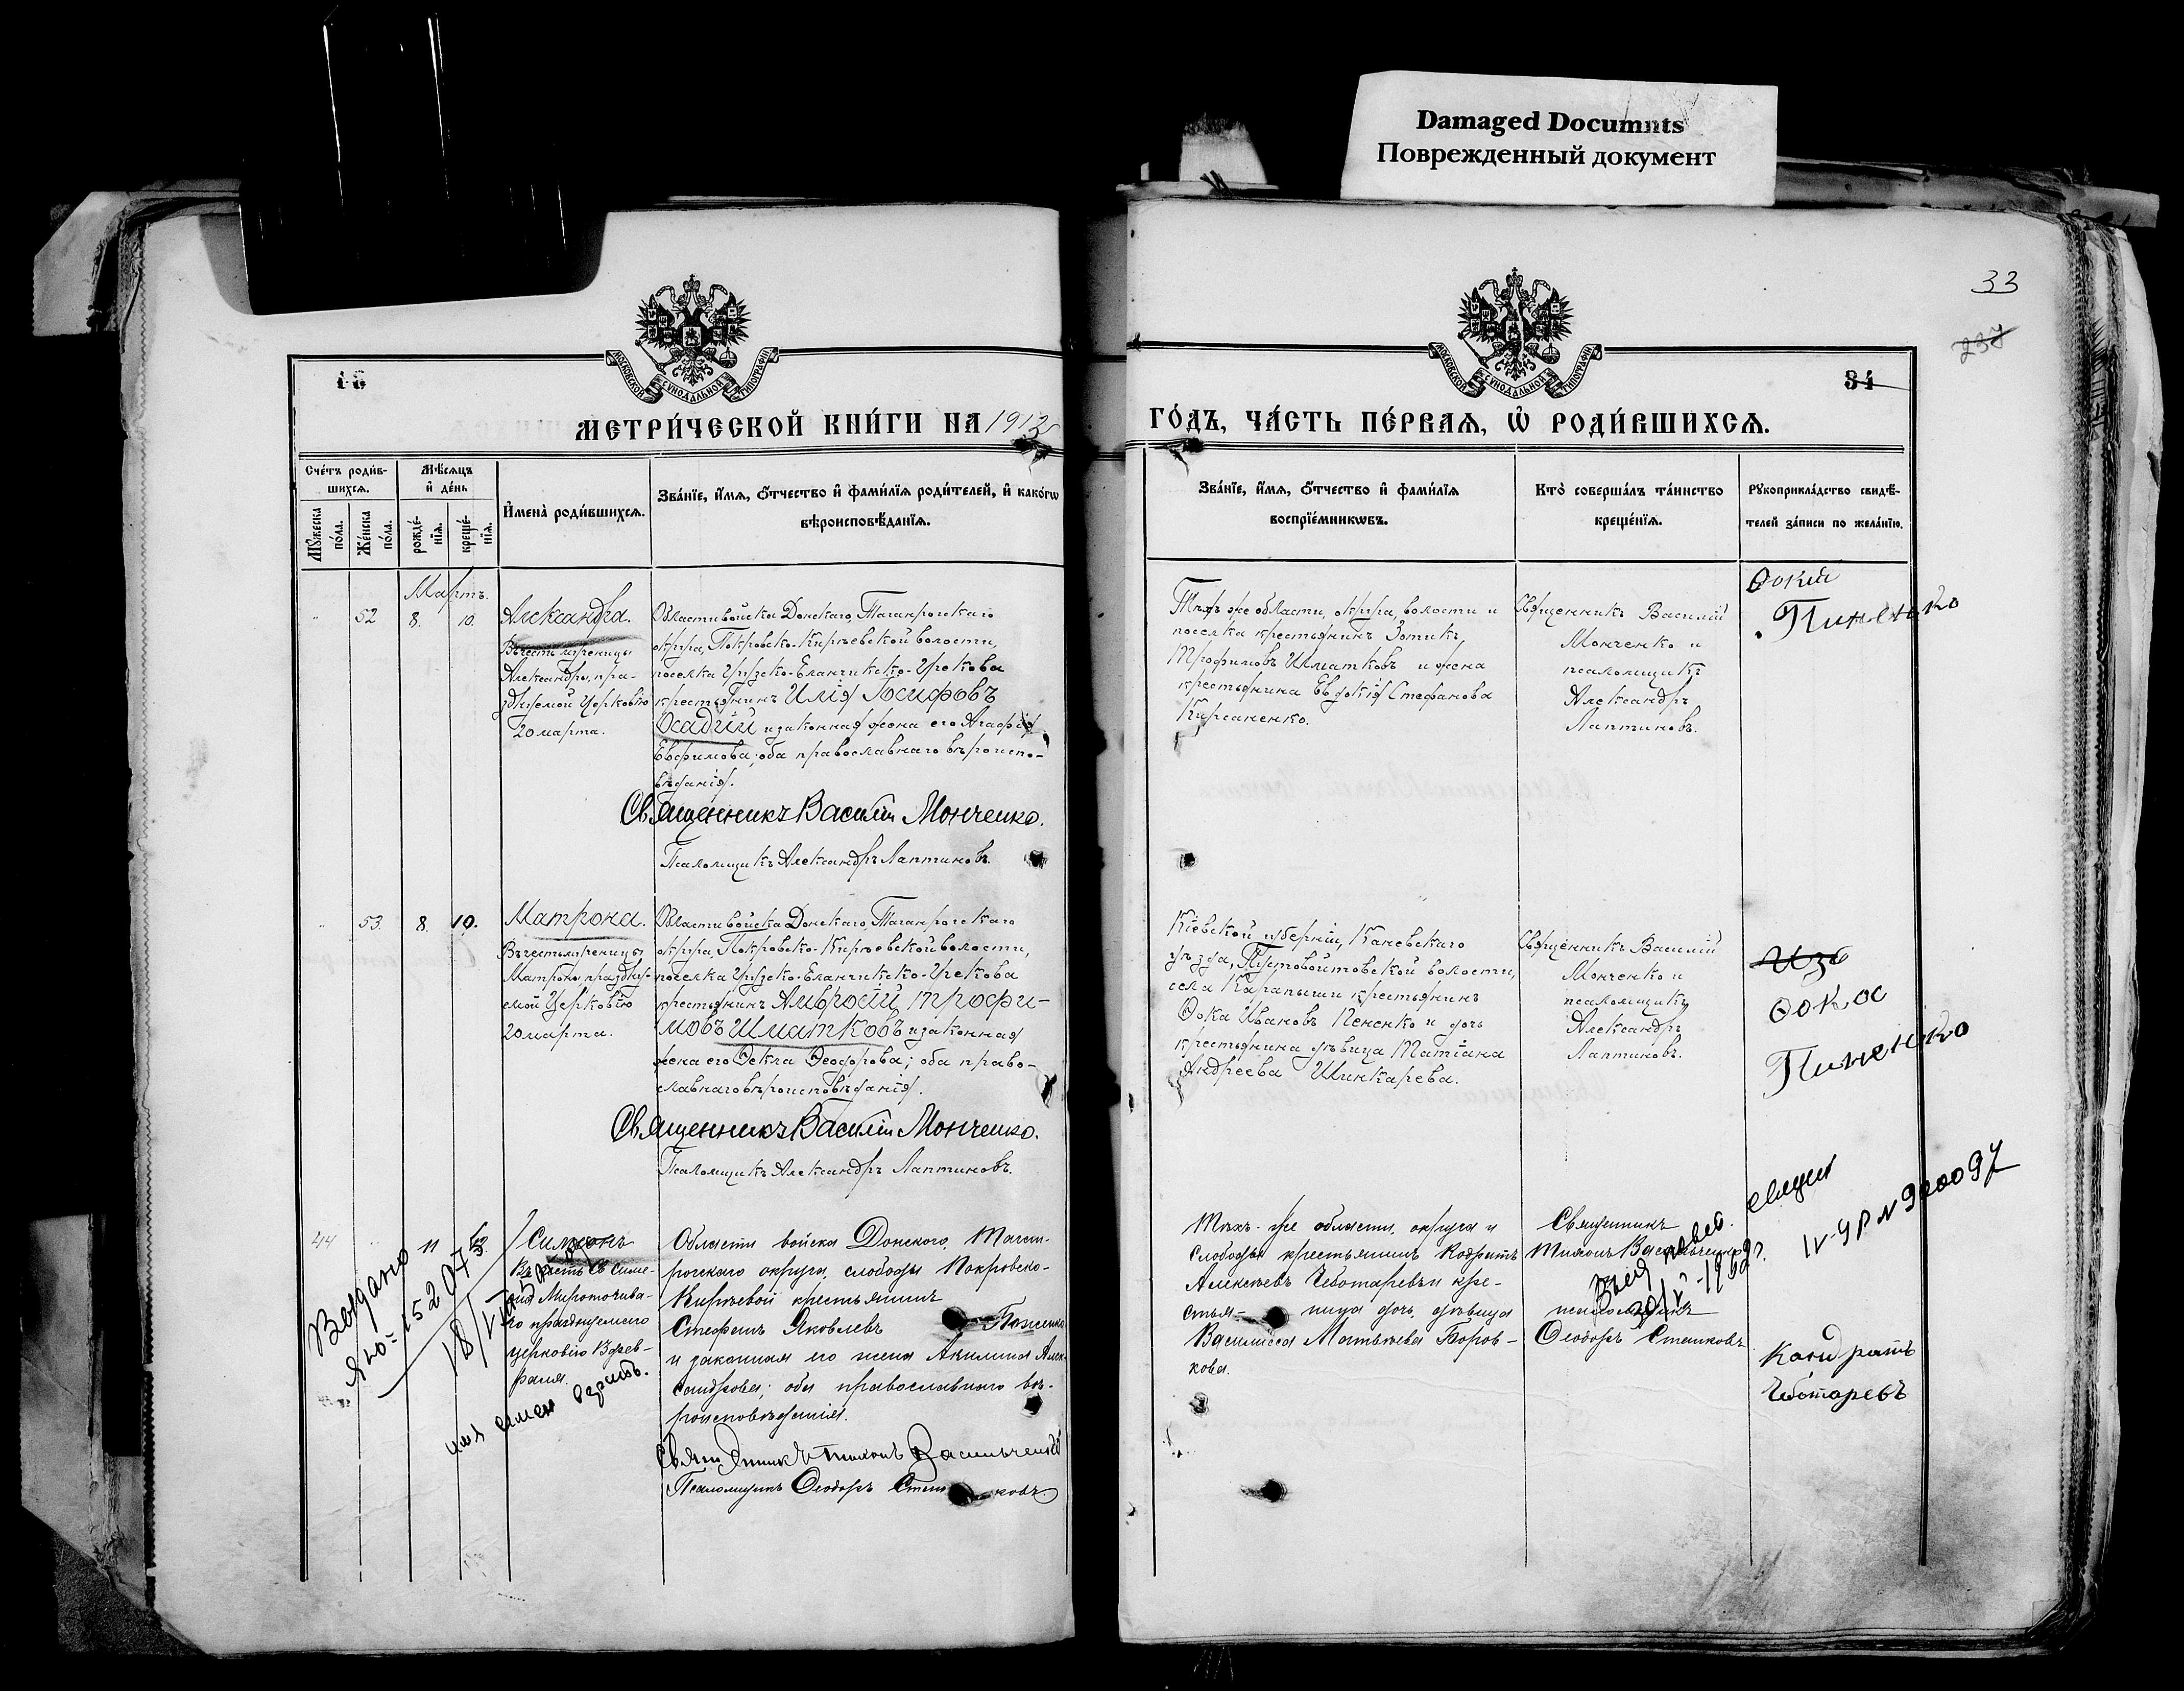 Damaged Documnts
Поврежденный документ
33
237
МОСКОВСКОЙ СУНОДАЛЬНОЙ ТИПОГРАФІИ
МОСКОВСКОЙ СУНОДАЛЬНОЙ ТИПОГРАФІИ
34
МЕТРИ́ЧЕСКОЙ КНИ́ГИ НА 1913
ГО́ДЪ, ЧА́СТЬ ПЕ́РВАѦ, Ѡ РОДИ́ВШИХСѦ.
Сче́тъ роди́в-
шихсѧ.
Мѣ́сѧцъ
и҆ де́нь
Мꙋ́жеска
по́ла.
Же́нска
по́ла.
рожде́-
нїѧ.
креще́-
нїѧ.
И҆мена̀ роди́вшихсѧ.
Зва́нїе, и҆́мѧ, ѻ҆́тчество и҆ фами́лїѧ роди́телей, и҆ како́гѡ
вѣроисповѣ́данїѧ.
Зва́нїе, и҆́мѧ, ѻ҆́тчество и҆ фами́лїѧ
воспрїе́мникѡвъ.
Кто̀ соверша́лъ та́инство
креще́нїѧ.
Рꙋкоприкла́дство свидѣ́-
телей за́писи по жела́нїю.
Мартъ.
52
8.
10.
Александра.
Въ честь мученицы
Александры, пра-
зднуемой Церковію
20 марта.
Области войска Донскаго, Таганрогскаго
округа, Покровско-Кирѣевской волости,
поселка Грузско-Еланчикско-Грекова
крестьянинъ Илія Іосифовъ
Осадчій и законная жена его Агафія
Евфимова; оба православнаго вѣроиспо-
вѣданія.
Священникъ Василій Монченко.
Псаломщикъ Александръ Лаптиновъ.
Тѣхъ же области, округа, волости и
поселка крестьянинъ Зотикъ
Трофимовъ Шматковъ и жена
крестьянина Евдокія Стефанова
Кирсаненко.
Священникъ Василій
Монченко и
псаломщикъ
Александръ
Лаптиновъ.
Ѳокій
Пиненько
53.
8.
10.
Матрона.
Въ честь мученицы
Матроны, праздну-
емой Церковію
20 марта.
Области войска Донскаго, Таганрогскаго
округа, Покровско-Кирѣевской волости,
поселка Грузско-Еланчикско-Грекова
крестьянинъ Амвросій Трофи-
мовъ Шматковъ и законная
жена его Ѳекла Ѳеодорова; оба право-
славнаго вѣроисповѣданія.
Священникъ Василій Монченко.
Псаломщикъ Александръ Лаптиновъ.
Кіевской губерніи, Каневскаго
уѣзда, Пустовойтовской волости,
села Карапыши крестьянинъ
Ѳока Ивановъ Пененко и дочь
крестьянина дѣвица Татіана
Андреева Шинкарева.
Священникъ Василій
Монченко и
псаломщикъ
Александръ
Лаптиновъ.
Ѳокос
Пиненько
44
11
Симеонъ
Въ честь Св. Симе-
она Мироточива-
го празднуемаго
церковію 13 фев-
раля.
Области войска Донского, Таган-
рогскаго округа, слободы Покровско-
Кирѣевой крестьянинъ
Стефанъ Яковлевъ
и законная его жена Акилина Алек-
сандрова; оба православнаго вѣ-
роисповѣданія.
Священникъ Тихонъ Васильченко
Псаломщикъ Ѳеодоръ
Тѣхъ-же области, округа и
слободы крестьянинъ Кодратъ
Алексѣевъ Чеботаревъ и кре-
стья- нина дочь, дѣвица
Василисса Матвѣева Боров-
кова.
Священникъ
Тихонъ Васильченко
псаломщикъ
Ѳеодоръ
Кондратъ
Чеботаревъ
Выдано
18/VII